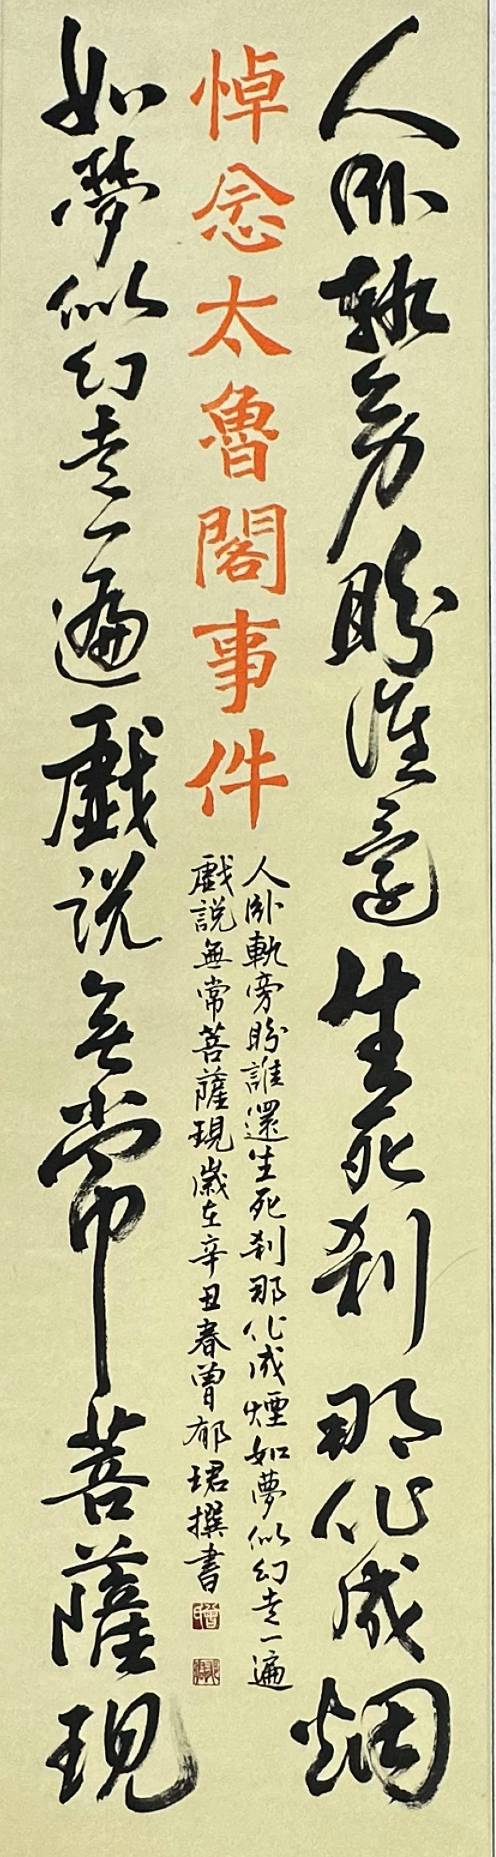 人臥軌旁盼誰還生死剎那化成烟
悼念太魯閣事件
人臥軌旁盼誰還生死剎那化成煙如夢似幻走一遍
戲說無常菩薩現歲在辛丑春曾郁珺撰書
如夢似幻走一遍戲說無常菩薩現